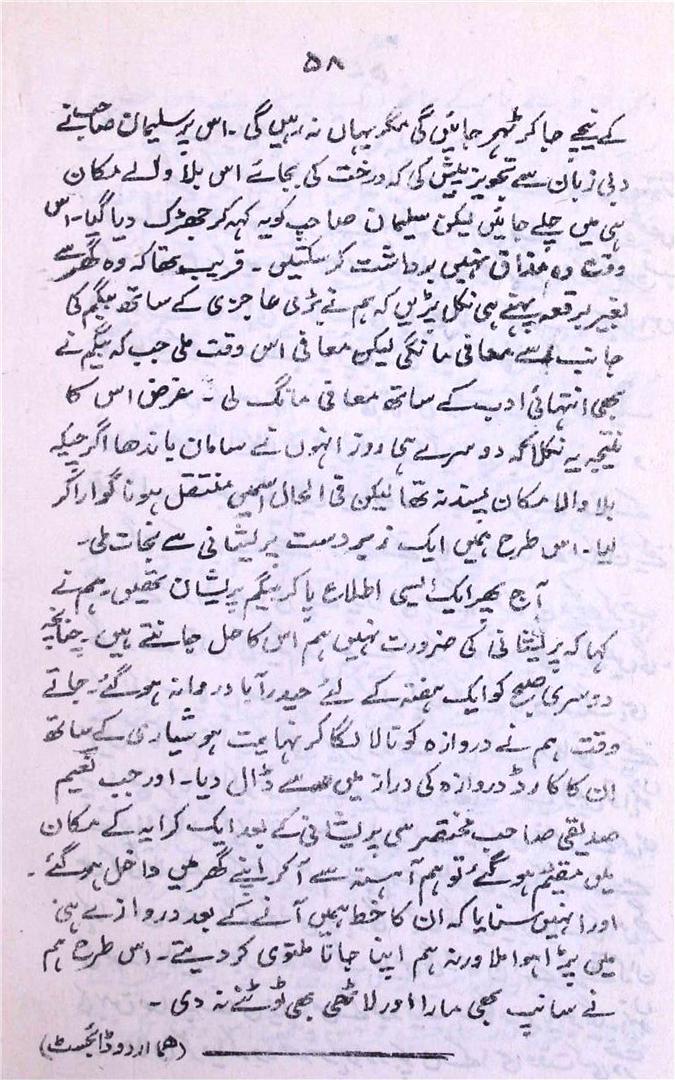 ۵۸
کے نیچے جا کر ٹہر جائیں گی مگر یہاں نہ رہیں گی ۔ اس پر سلیمان صاحب نے
دبی زبان سے تجویز پیش کی کہ درخت کی بجائے اس بلا والے مکان
ہی میں چلے جائیں لیکن سلیمان صاحب کو یہ کہہ کر جھڑک دیا گیا ۔ اس
وقت وہ مذاق نہیں برداشت کر سکتیں ۔ قریب تھا کہ وہ گھر سے
بغیر برقعہ پہنے ہی نکل پڑیں کہ ہم نے بڑی عاجزی کے ساتھ بیگم کی
جانب سے معافی مانگی لیکن معافی اس وقت ملی جب کہ بیگم نے
بھی انتہائی ادب کے ساتھ معافی مانگ لی ۔ غرض اس کا
نتیجہ یہ نکلا کہ دوسرے ہی روز انہوں نے سامان باندھا اگرچیکہ
بلا والا مکان پسند نہ تھا لیکن فی الحال اسمیں منتقل ہونا گوارا کر
لیا ۔ اس طرح ہمیں ایک زبردست پریشانی سے نجات ملی ۔
آج پھر ایک ایسی اطلاع پا کر بیگم پریشان تھیں ۔ ہم نے
کہا کہ پریشانی کی ضرورت نہیں ہم اس کا حل جانتے ہیں ۔ چنانچہ
دوسری صبح کو ایک ہفتہ کے لئے حیدرآباد روانہ ہو گئے ۔ جاتے
وقت ہم نے دروازہ کو تالا لگا کر نہایت ہوشیاری کے ساتھ
ان کا کارڈ دروازہ کی دراز میں سے ڈال دیا ۔ اور جب نعیم
صدیقی صاحب مختصر سی پریشانی کے بعد ایک کرایہ کے مکان
میں مقیم ہو گئے تو ہم آہستہ سے آ کر اپنے گھر میں داخل ہو گئے ۔
اور انہیں سنایا کہ ان کا خط ہمیں آنے کے بعد دروازے ہی
میں پڑا ہوا ملا ورنہ ہم اپنا جانا ملتوی کر دیتے ۔ اس طرح ہم
نے سانپ بھی مارا اور لاٹھی بھی ٹوٹنے نہ دی ۔
(ھما اردو ڈائجسٹ)